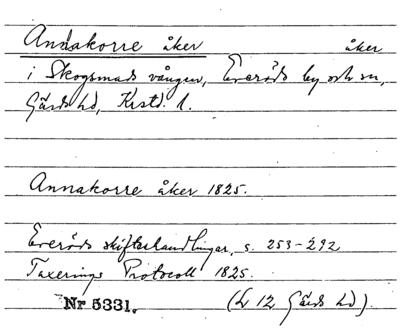 Annakorre åker åker
i Skogsmads vången, Everöds by och sn,
Gärds hd, Krstd. l.
Annakorre åker 1825.
Everöds skifteshandlingar, s. 253-292
Taxerings Protocoll 1825.
Nr 5331. (L 12 Gärds hd).